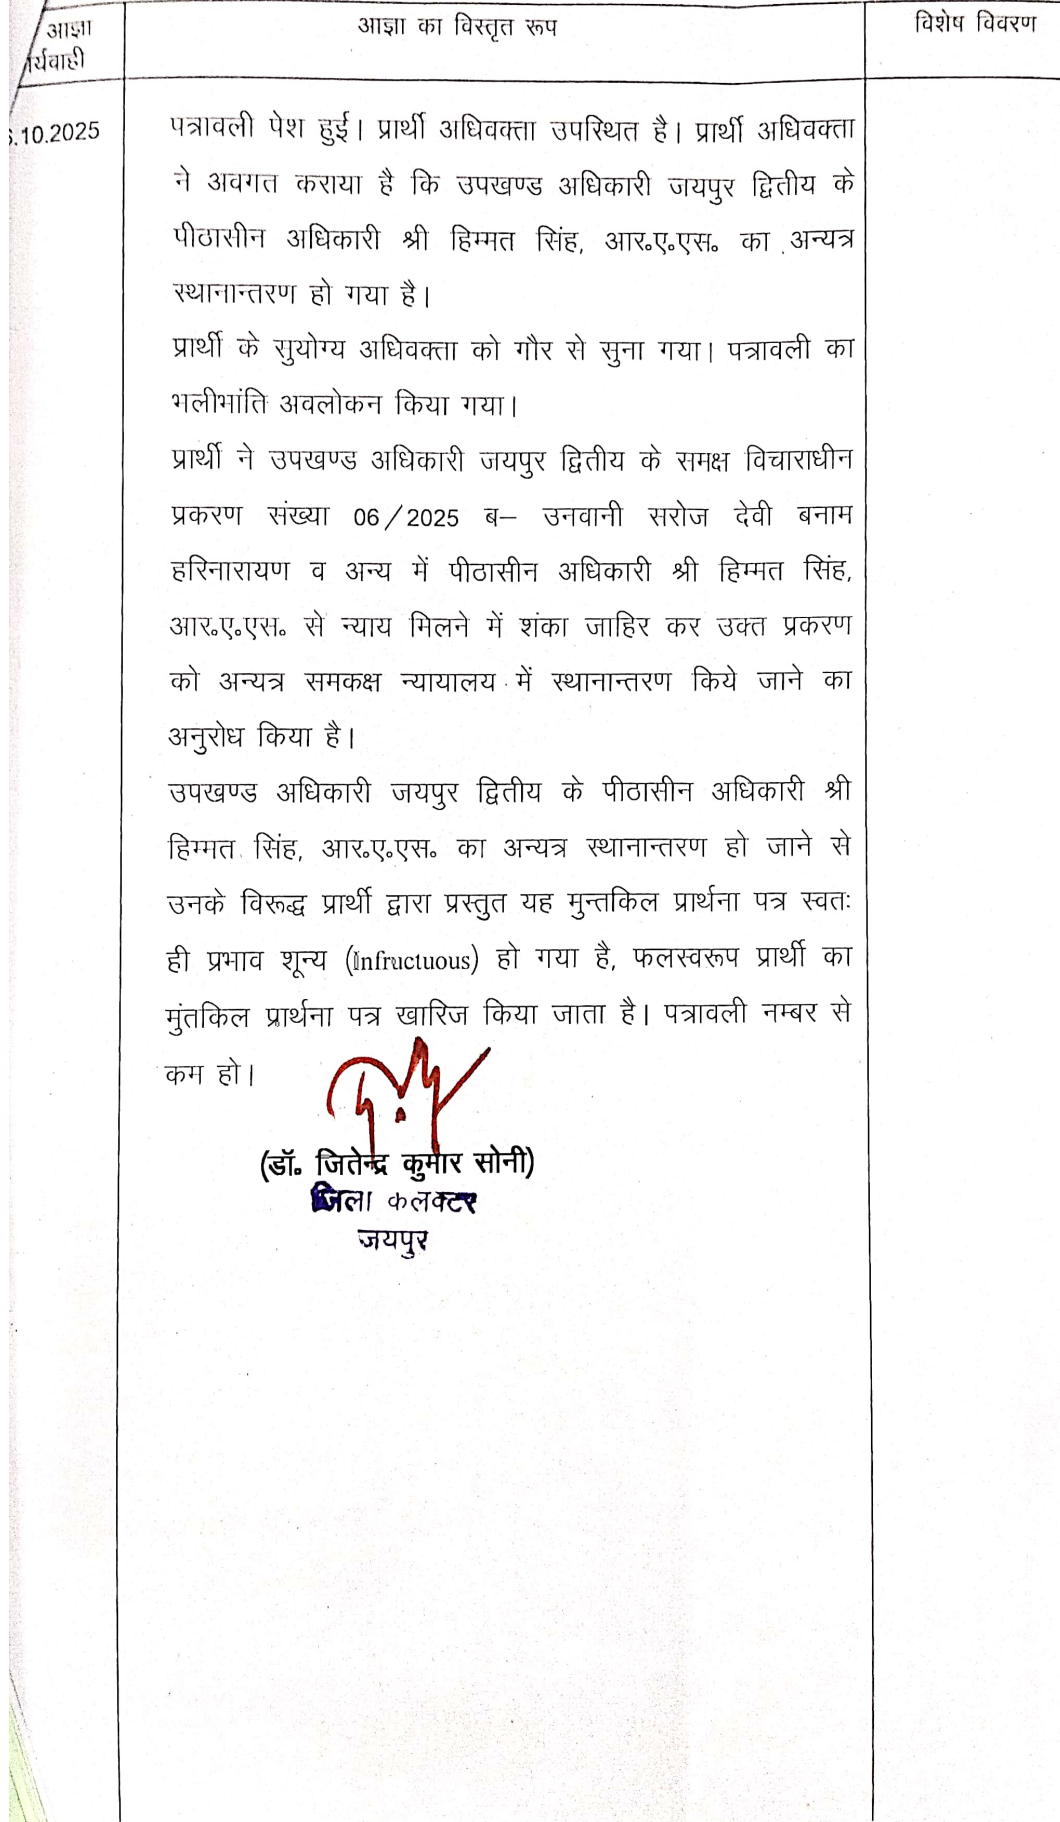 आज्ञा
आज्ञा का विस्तृत रूप
विशेष विवरण
र्यवाही
.10.2025
पत्रावली पेश हुई। प्रार्थी अधिवक्ता उपस्थित है। प्रार्थी अधिवक्ता
ने अवगत कराया है कि उपखण्ड अधिकारी जयपुर द्वितीय के
पीठासीन अधिकारी श्री हिम्मत सिंह, आर०ए०एस० का अन्यत्र
स्थानान्तरण हो गया है।
प्रार्थी के सुयोग्य अधिवक्ता को गौर से सुना गया। पत्रावली का
भलीभांति अवलोकन किया गया।
प्रार्थी ने उपखण्ड अधिकारी जयपुर द्वितीय के समक्ष विचाराधीन
प्रकरण संख्या 06/2025 ब– उनवानी सरोज देवी बनाम
हरिनारायण व अन्य में पीठासीन अधिकारी श्री हिम्मत सिंह,
आर०ए०एस० से न्याय मिलने में शंका जाहिर कर उक्त प्रकरण
को अन्यत्र समकक्ष न्यायालय में स्थानान्तरण किये जाने का
अनुरोध किया है।
उपखण्ड अधिकारी जयपुर द्वितीय के पीठासीन अधिकारी श्री
हिम्मत सिंह, आर०ए०एस० का अन्यत्र स्थानान्तरण हो जाने से
उनके विरूद्ध प्रार्थी द्वारा प्रस्तुत यह मुन्तकिल प्रार्थना पत्र स्वतः
ही प्रभाव शून्य (Infructuous) हो गया है, फलस्वरूप प्रार्थी का
मुंतकिल प्रार्थना पत्र खारिज किया जाता है। पत्रावली नम्बर से
कम हो।
(डॉ० जितेन्द्र कुमार सोनी)
जिला कलक्टर
जयपुर